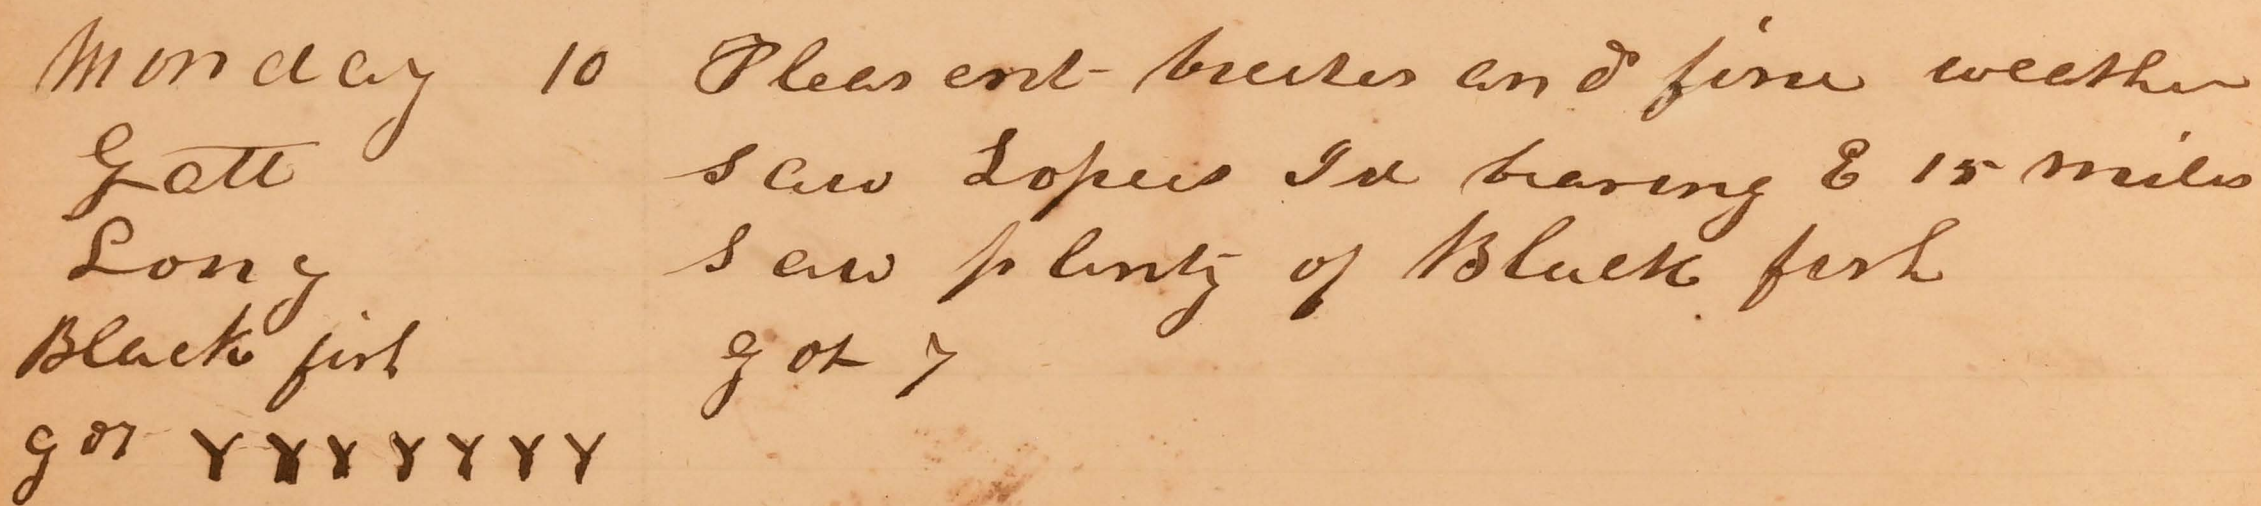 Monday 10 Pleasent breezes and fine weather
Latt saw Lopers Id bearing E 15 miles
Long saw plenty of Black fish
Black fish got 7
got